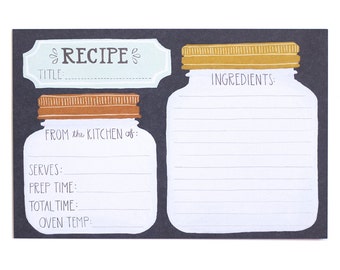 RECIPE
TITLE
FROM the KITCHEN of:
SERVES:
PREP TIME:
TOTAL TIME:
OVEN TEMP:
INGREDIENTS: